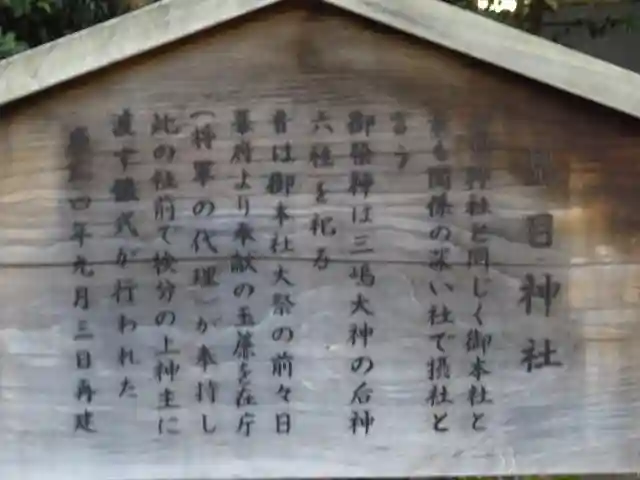 見目神社
神社と同じく御本社と
も関係の深い社で摂社と
言う
御祭神は三嶋大神の后神
六柱を祀る
昔は御本社大祭の前々日
幕府より奉献の玉簾を在庁
(将軍の代理)が奉持し
此の社前で検分の上神主に
渡す儀式が行われた
四年九月三日再建